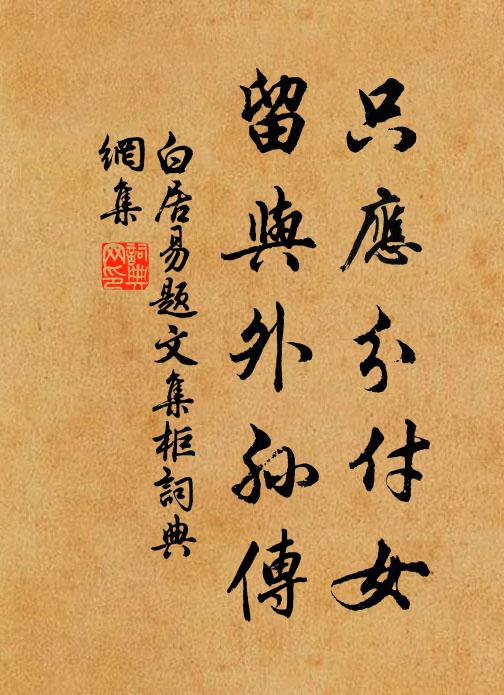 只應分付女
留與外孫傳
白居易題文集柜詞典
網集
詞典網印